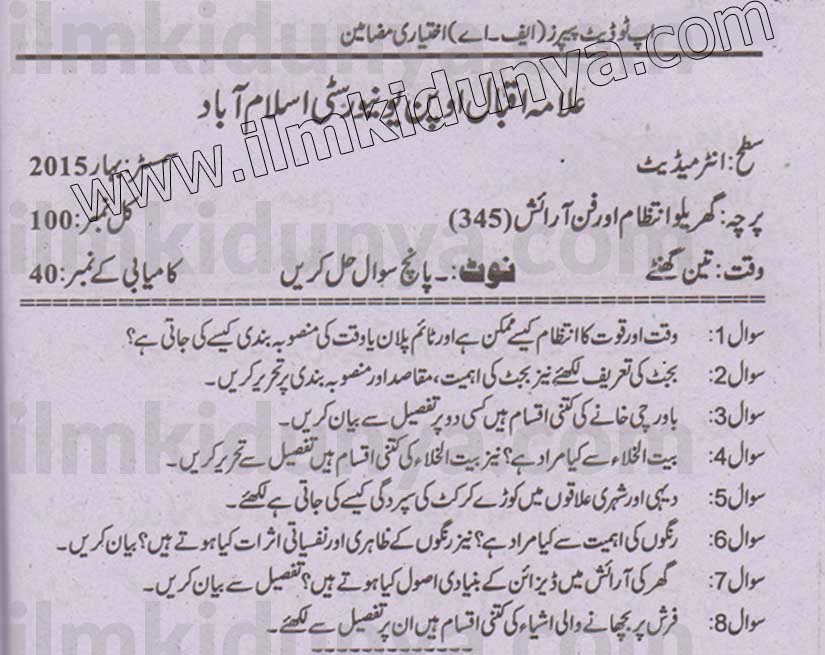 اپ ٹو ڈیٹ پیپرز (ایف۔اے) اختیاری مضامین
علامہ اقبال اوپن یونیورسٹی اسلام آباد
سطح: انٹرمیڈیٹ سمسٹر: بہار 2015
پرچہ: گھریلو انتظام اور فن آرائش (345) کل نمبر: 100
وقت: تین گھنٹے نوٹ:۔ پانچ سوال حل کریں کامیابی کے نمبر: 40
سوال 1: وقت اور قوت کا انتظام کیسے ممکن ہے اور ٹائم پلان یا وقت کی منصوبہ بندی کیسے کی جاتی ہے؟
سوال 2: بجٹ کی تعریف لکھئے نیز بجٹ کی اہمیت، مقاصد اور منصوبہ بندی پر تحریر کریں۔
سوال 3: باورچی خانے کی کتنی اقسام ہیں کسی دو پر تفصیل سے بیان کریں۔
سوال 4: بیت الخلاء سے کیا مراد ہے؟ نیز بیت الخلاء کی کتنی اقسام ہیں تفصیل سے تحریر کریں۔
سوال 5: دیہی اور شہری علاقوں میں کوڑے کرکٹ کی سپردگی کیسے کی جاتی ہے لکھئے۔
سوال 6: رنگوں کی اہمیت سے کیا مراد ہے؟ نیز رنگوں کے ظاہری اور نفسیاتی اثرات کیا ہوتے ہیں؟ بیان کریں۔
سوال 7: گھر کی آرائش میں ڈیزائن کے بنیادی اصول کیا ہوتے ہیں؟ تفصیل سے بیان کریں۔
سوال 8: فرش پر بچھانے والی اشیاء کی کتنی اقسام ہیں ان پر تفصیل سے لکھئے۔
www.ilmkidunya.com
ilmkidunya.com
ilmkidunya.com
ilmkidunya.com
ilmkidunya.com